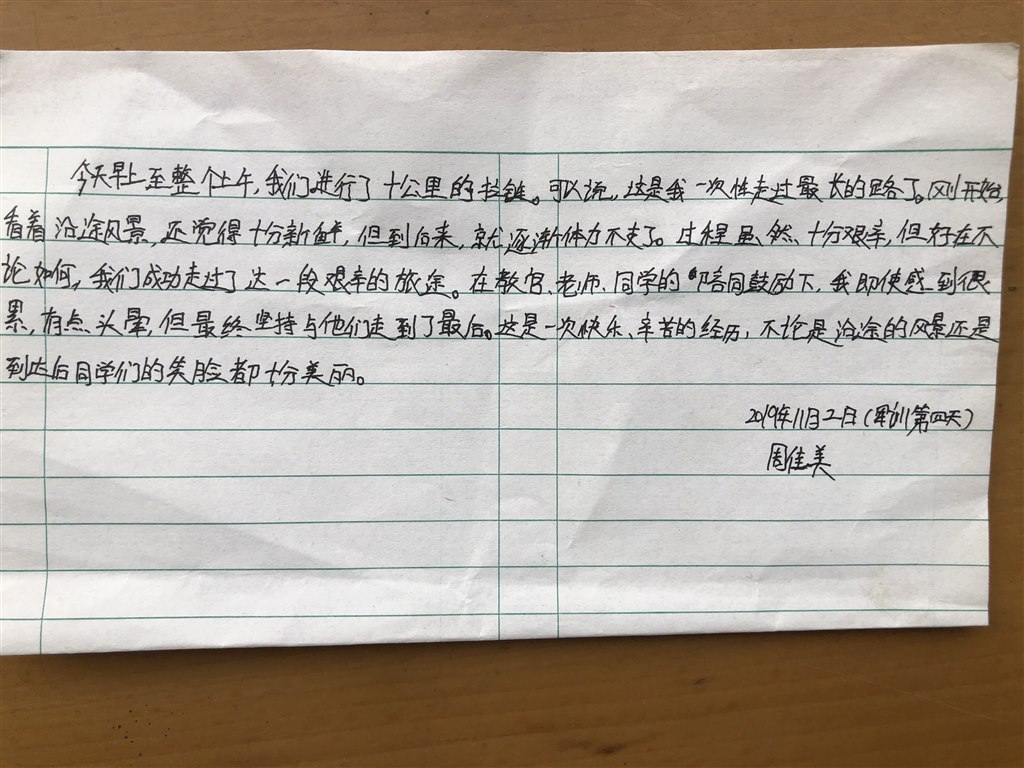 今天早上至整个上午，我们进行了十公里的拉链。可以说，这是我一次性走过最长的路了。刚开始，
看着沿途风景，还觉得十分新鲜，但到后来，就逐渐体力不支了。过程虽然十分艰辛，但好在不
论如何，我们成功走过了这一段艰辛的旅途。在教官、老师、同学的陪同鼓励下，我即使感到很
累，有点头晕，但最终坚持与他们走到了最后。这是一次快乐、辛苦的经历，不论是沿途的风景还是
到达后同学们的笑脸都十分美丽。
2019年11月2日（军训第四天）
周佳美